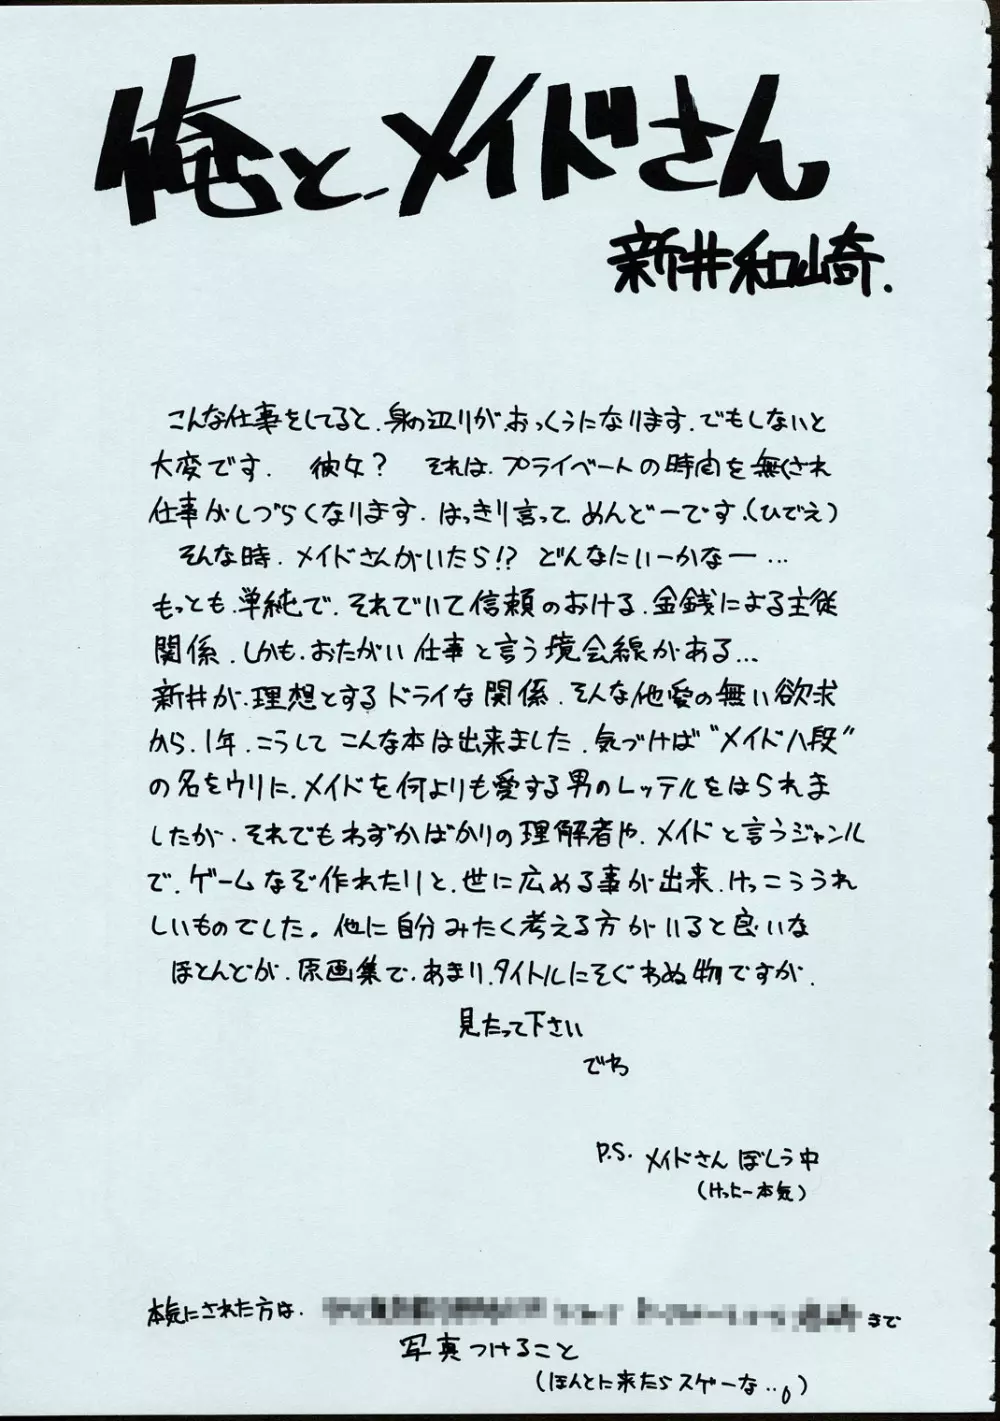 俺とメイドさん
新井和崎.
こんな仕事をしてると、身の辺りが、おっくうになります、でもしないと
大変です. 彼女? それは、プライベートの時間を無くされ
仕事がしづらくなります. はっきり言って、めんどーです.(ひでえ)
そんな時、メイドさんがいたら!? どんなにいーかなー…
もっとも、単純で、それでいて信頼のおける、金銭による主従
関係、しかも、おたがい仕事と言う境会線がある…
新井が、理想とするドライな関係、そんな他愛の無い欲求
から、1年、こうしてこんな本は出来ました、気づけば"メイド八段"
の名をウリに、メイドを何よりも愛する男のレッテルをはられま
したが、それでもわずかばかりの理解者や、メイドと言うジャンル
で、ゲームなぞ作れたりと、世に広める事が出来、けっこううれ
しいものでした。他に自分みたく考える方がいると良いな
ほとんどが、原画集で、あまり、タイトルにそぐわぬ物ですが、
見たって下さい
でわ
P.S. メイドさん ぼしう中
(けっこー本気)
本気にされた方は、 まで
写真つけること
(ほんとに来たらスゲーな…。)